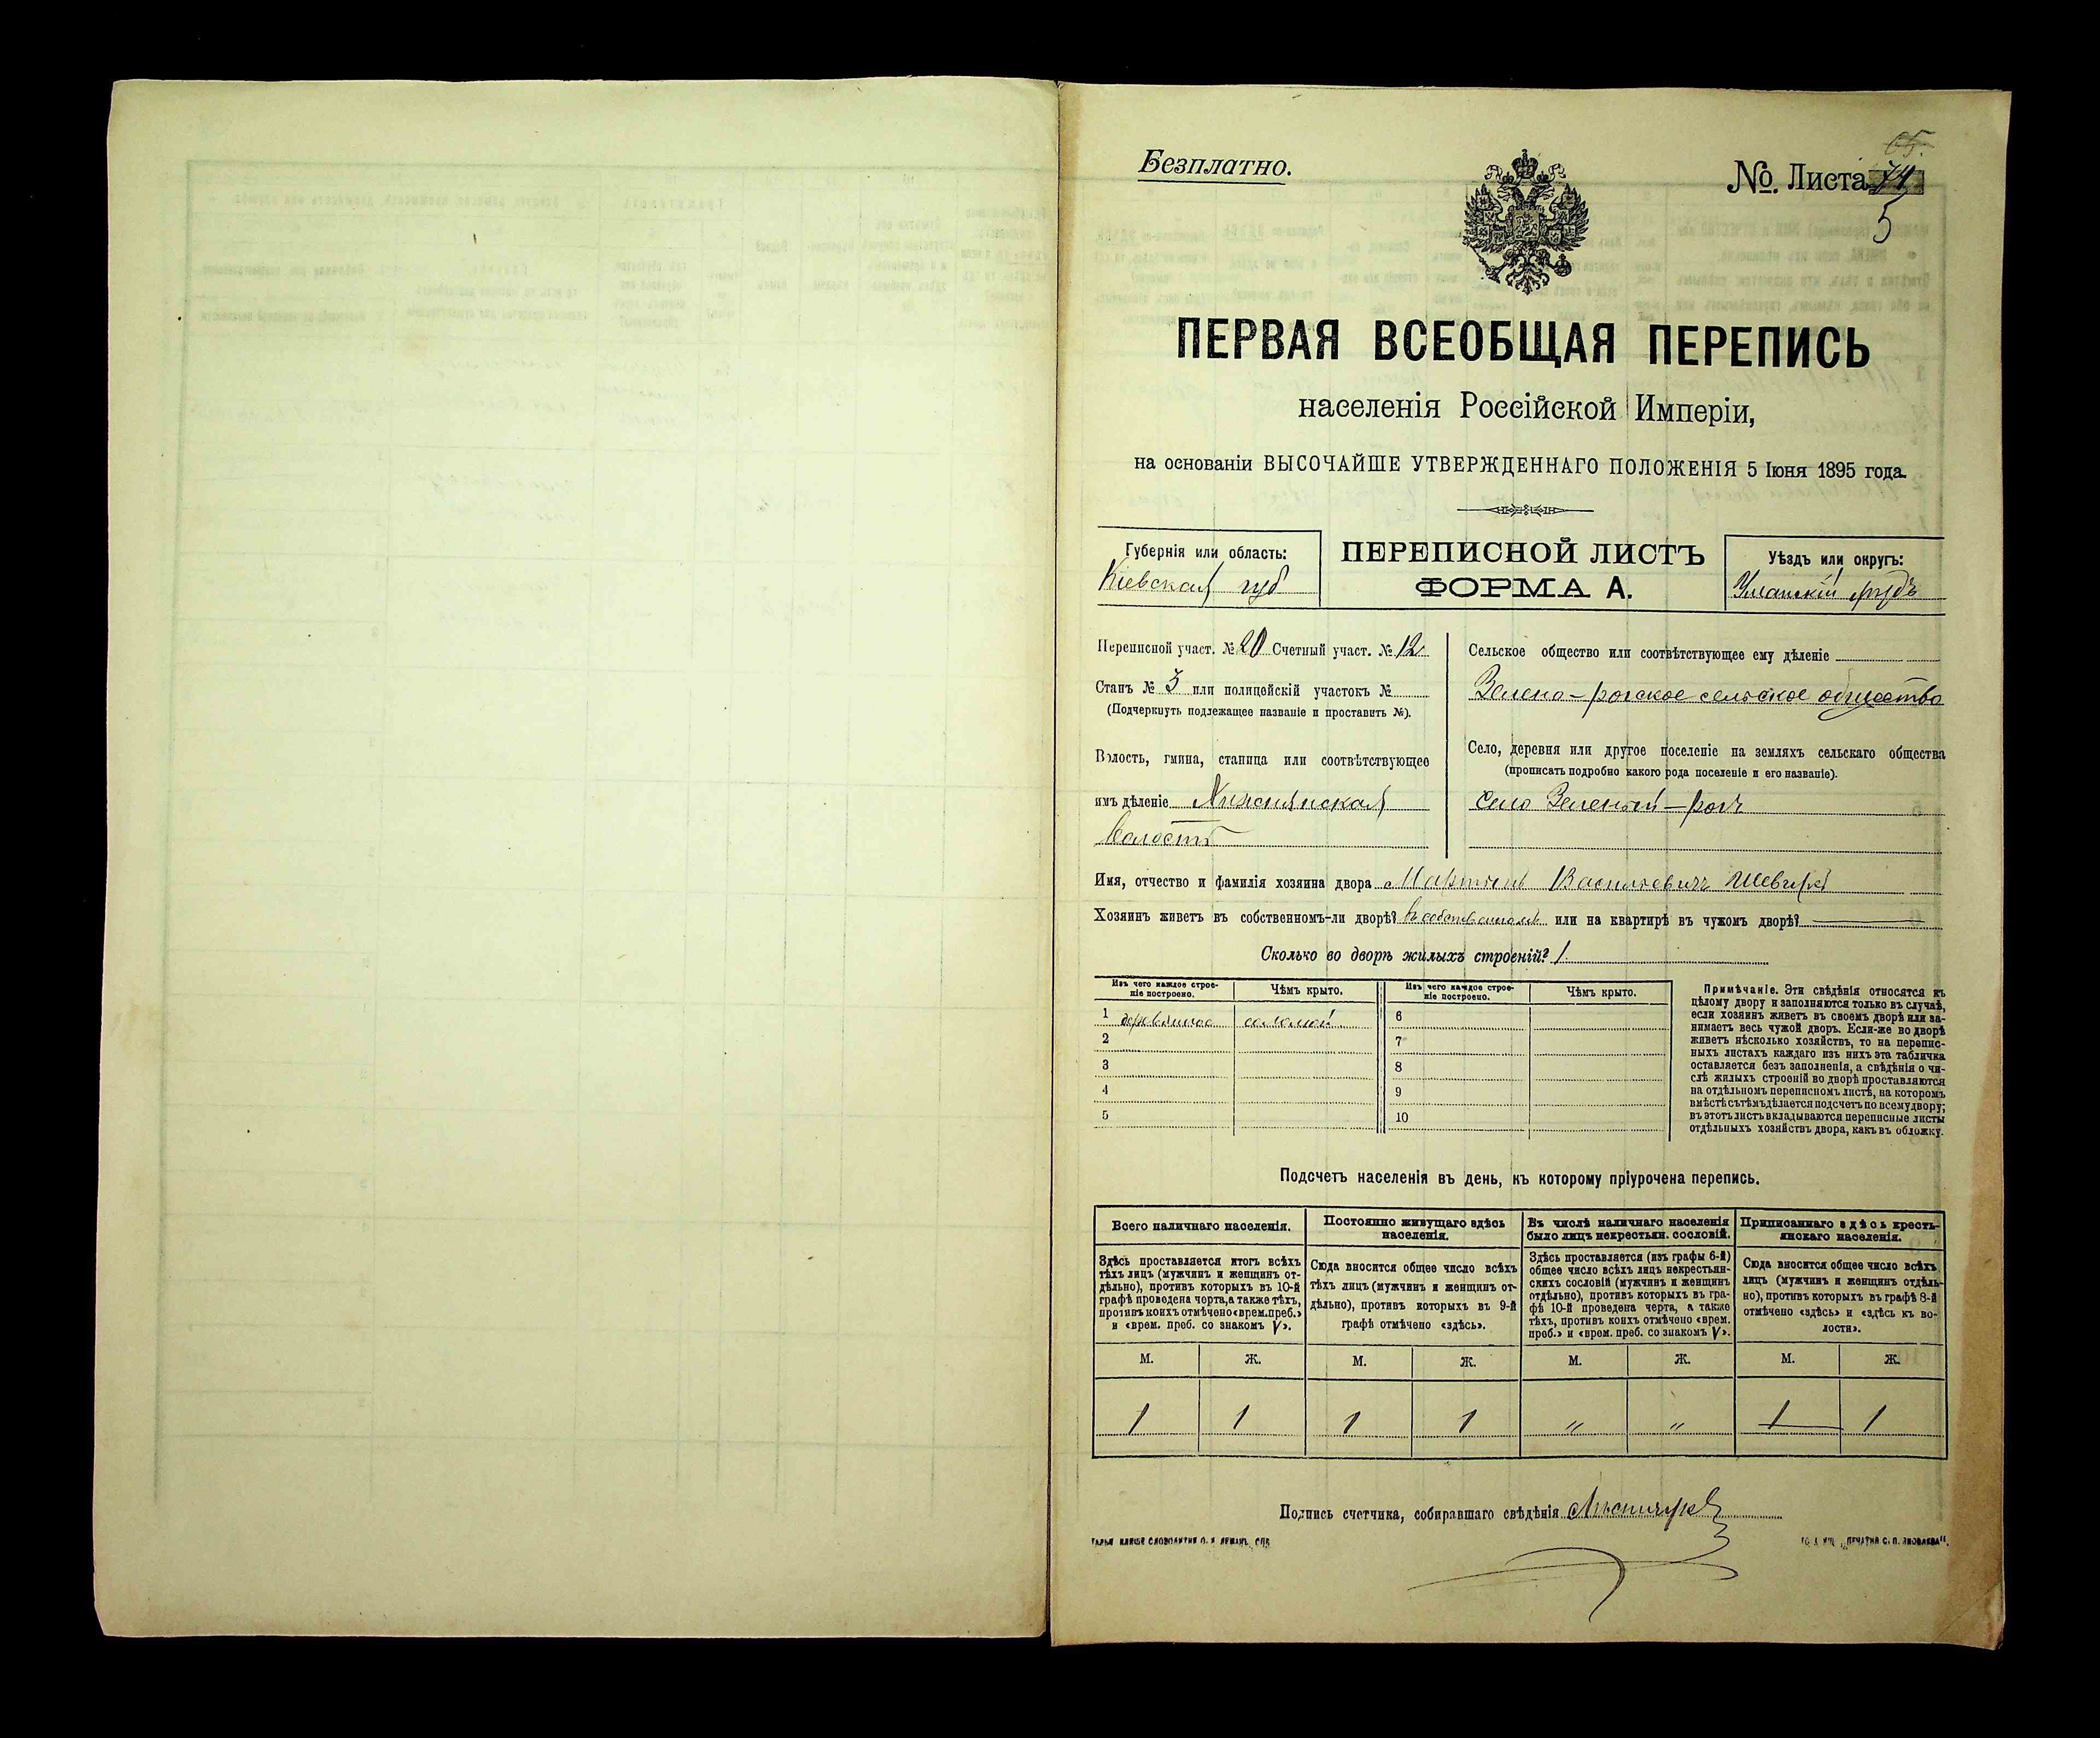 Безплатно.
№ Листа 74
65.
5
ПЕРВАЯ ВСЕОБЩАЯ ПЕРЕПИСЬ
населенія Россійской Имперіи,
на основаніи ВЫСОЧАЙШЕ УТВЕРЖДЕННАГО ПОЛОЖЕНІЯ 5 Іюня 1895 года.
Губернія или область:
Кіевская губ
ПЕРЕПИСНОЙ ЛИСТЪ
ФОРМА А.
Уѣздъ или округъ:
Уманскій уѣздъ
Переписной участ. № 20 Счетный участ. № 12
Станъ № 3 или полицейскій участокъ №
(Подчеркнуть подлежащее названіе и проставить №).
Волость, гмина, станица или соотвѣтствующее
имъ дѣленіе
волость
Сельское общество или соотвѣтствующее ему дѣленіе
Зелено-рогское сельское общество
Село, деревня или другое поселеніе на земляхъ сельскаго общества
(прописать подробно какого рода поселеніе и его названіе).
Село Зеленый-рогъ
Имя, отчество и фамилія хозяина двора Мартынъ Васильевичъ
Хозяинъ живетъ въ собственномъ-ли дворѣ? въ собственномъ или на квартирѣ въ чужомъ дворѣ?
Сколько во дворѣ жилыхъ строеній? 1
Изъ чего каждое строе-
ніе построено.
Чѣмъ крыто.
Изъ чего каждое строе-
ніе построено.
Чѣмъ крыто.
1 деревянное соломой 6
2 7
3 8
4 9
5 10
Примѣчаніе. Эти свѣдѣнія относятся къ
цѣлому двору и заполняются только въ случаѣ,
если хозяинъ живетъ въ своемъ дворѣ или за-
нимаетъ весь чужой дворъ. Если-же во дворѣ
живетъ нѣсколько хозяйствъ, то на перепис-
ныхъ листахъ каждаго изъ нихъ эта табличка
оставляется безъ заполненія, а свѣдѣнія о чи-
слѣ жилыхъ строеній во дворѣ проставляются
на отдѣльномъ переписномъ листѣ, на которомъ
вмѣстѣ съ тѣмъ дѣлается подсчетъ по всему двору;
въ этотъ листъ вкладываются переписные листы
отдѣльныхъ хозяйствъ двора, какъ въ обложку.
Подсчетъ населенія въ день, къ которому пріурочена перепись.
Всего наличнаго населенія.
Здѣсь проставляется итогъ всѣхъ
тѣхъ лицъ (мужчинъ и женщинъ от-
дѣльно), противъ которыхъ въ 10-й
графѣ проведена черта, а также тѣхъ,
противъ коихъ отмѣчено «врем. преб.»
и «врем. преб. со знакомъ V».
Постоянно живущаго здѣсь
населенія.
Сюда вносится общее число всѣхъ
тѣхъ лицъ (мужчинъ и женщинъ от-
дѣльно), противъ которыхъ въ 9-й
графѣ отмѣчено «здѣсь».
Въ числѣ наличнаго населенія
было лицъ некрестьян. сословій.
Здѣсь проставляется (изъ графы 6-й)
общее число всѣхъ лицъ некрестьян-
скихъ сословій (мужчинъ и женщинъ
отдѣльно), противъ которыхъ въ гра-
фѣ 10-й проведена черта, а также
тѣхъ, противъ коихъ отмѣчено «врем.
преб.» и «врем. преб. со знакомъ V».
Приписаннаго здѣсь кресть-
янскаго населенія.
Сюда вносится общее число всѣхъ
лицъ (мужчинъ и женщинъ отдѣль-
но), противъ которыхъ въ графѣ 8-й
отмѣчено «здѣсь» и «здѣсь къ во-
лости».
М. Ж. М. Ж. М. Ж. М. Ж.
1 1 1 1 " " 1 1
Подпись счетчика, собиравшаго свѣдѣнія